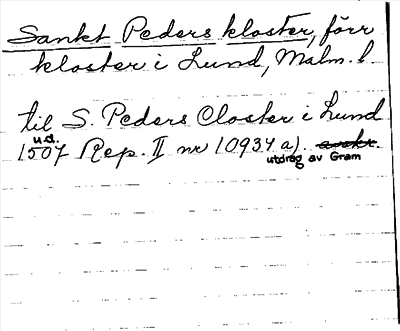 Sankt Peders kloster, förr
kloster i Lund, Malm. l.
til S. Peders Closter i Lund
u.d.
1507 Rep. II nr 10934 a). avskr.
utdrag av Gram